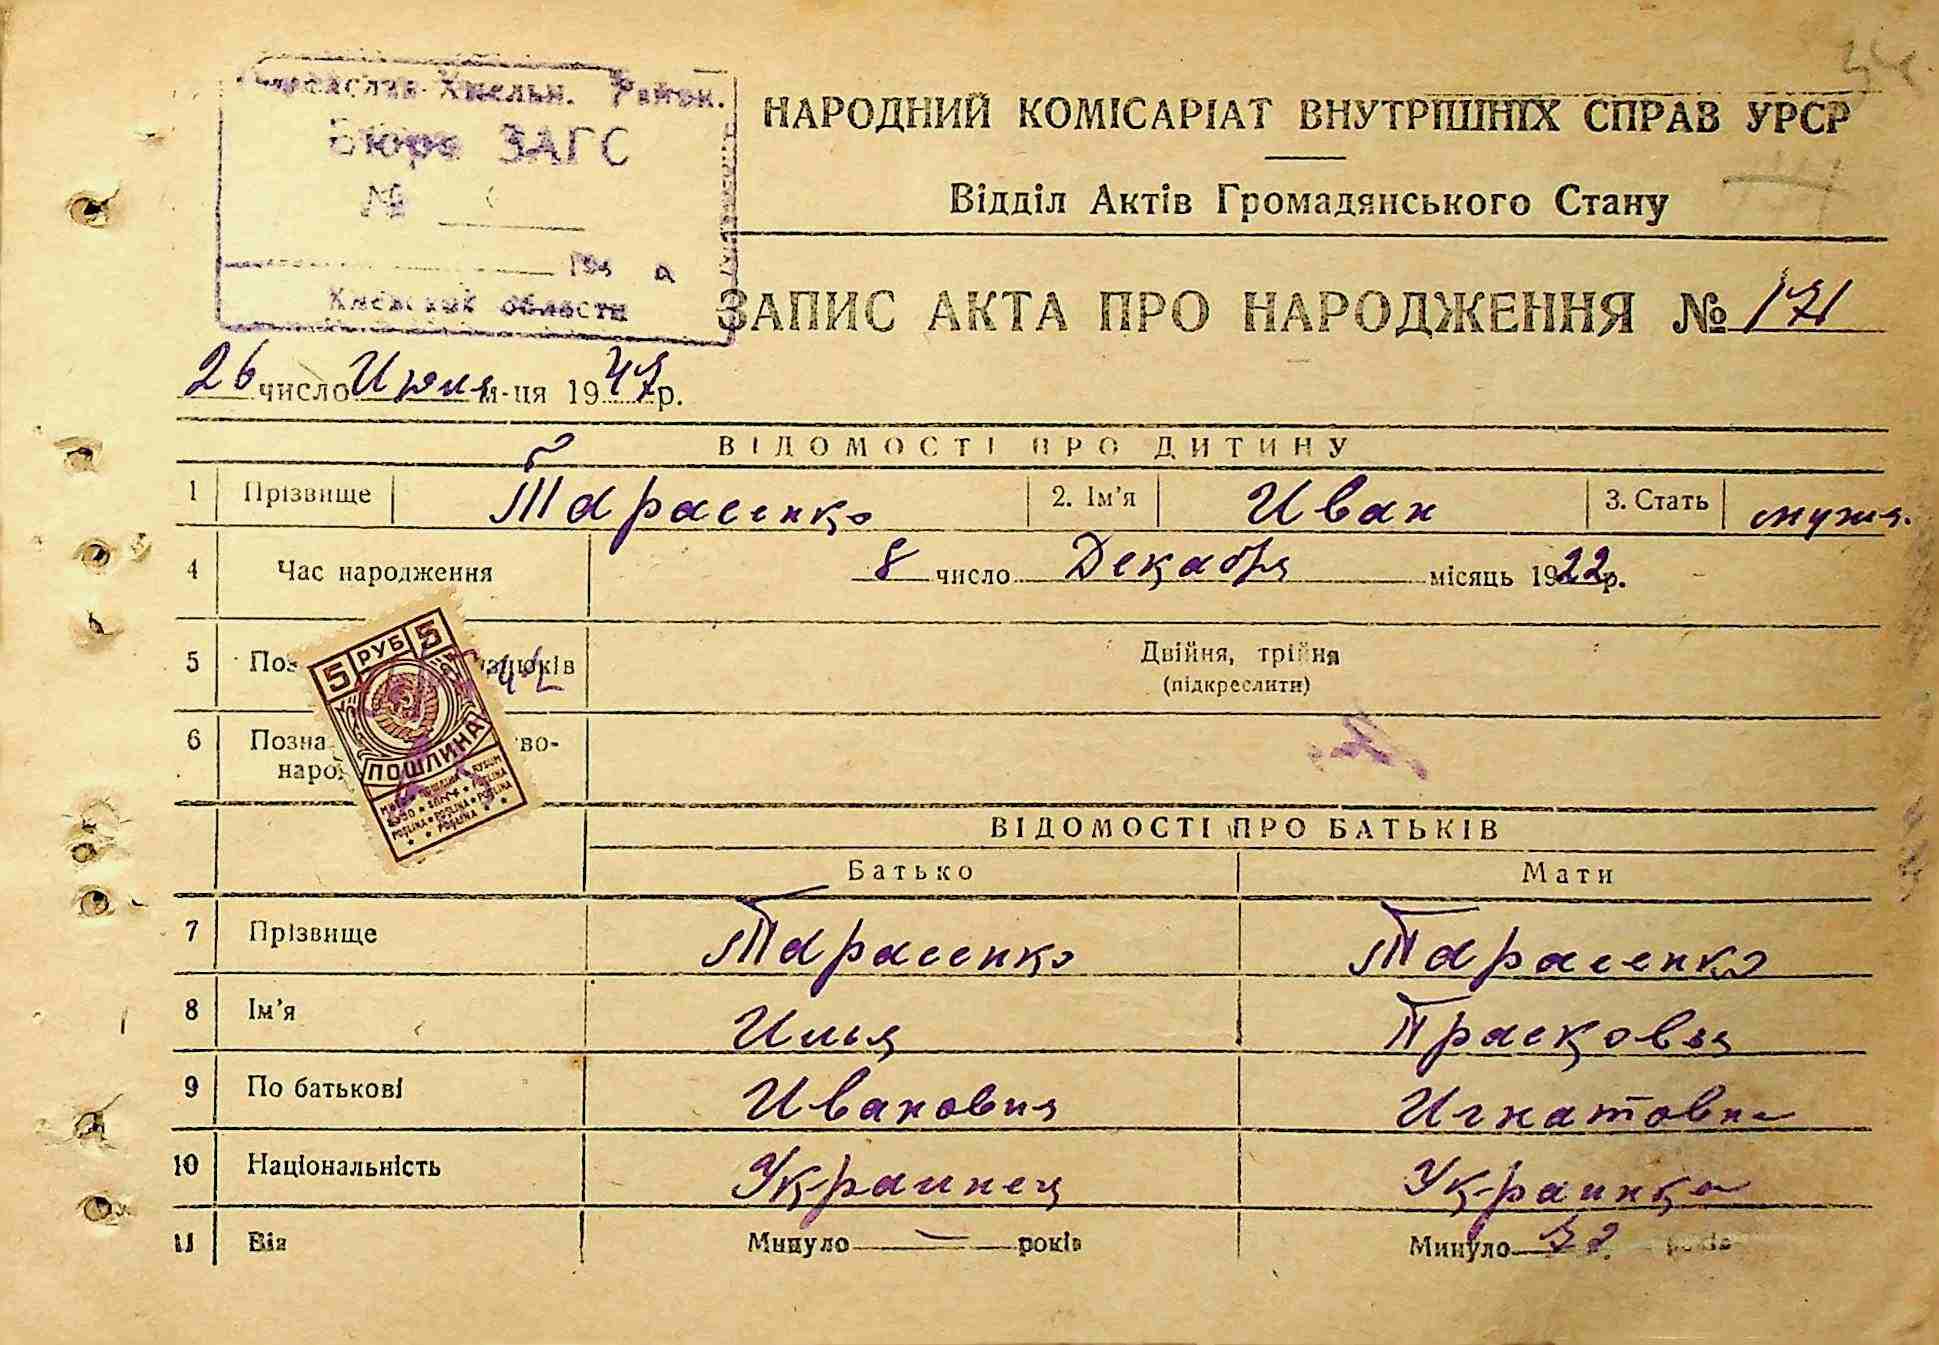 Хмельн. Район.
Бюро ЗАГС
№
Киевской области
НАРОДНИЙ КОМІСАРІАТ ВНУТРІШНІХ СПРАВ УРСР
Відділ Актів Громадянського Стану
ЗАПИС АКТА ПРО НАРОДЖЕННЯ № 171
26 число Июля м-ця 1947 р.
ВІДОМОСТІ ПРО ДИТИНУ
1 Прізвище Тарасенко 2. Ім'я Иван 3. Стать мужс.
4 Час народження 8 число Декабря місяць 1922 р.
5 Поз близнюків Двійня, трійня
(підкреслити)
6 Позна во-
наро
5 РУБ 5
ПОШЛИНА
ВІДОМОСТІ ПРО БАТЬКІВ
Батько Мати
7 Прізвище Тарасенко Тарасенко
8 Ім'я Илья Прасковья
9 По батькові Иванович Игнатовна
10 Національність Украинец Украинка
11 Вік Минуло — років Минуло 52. років